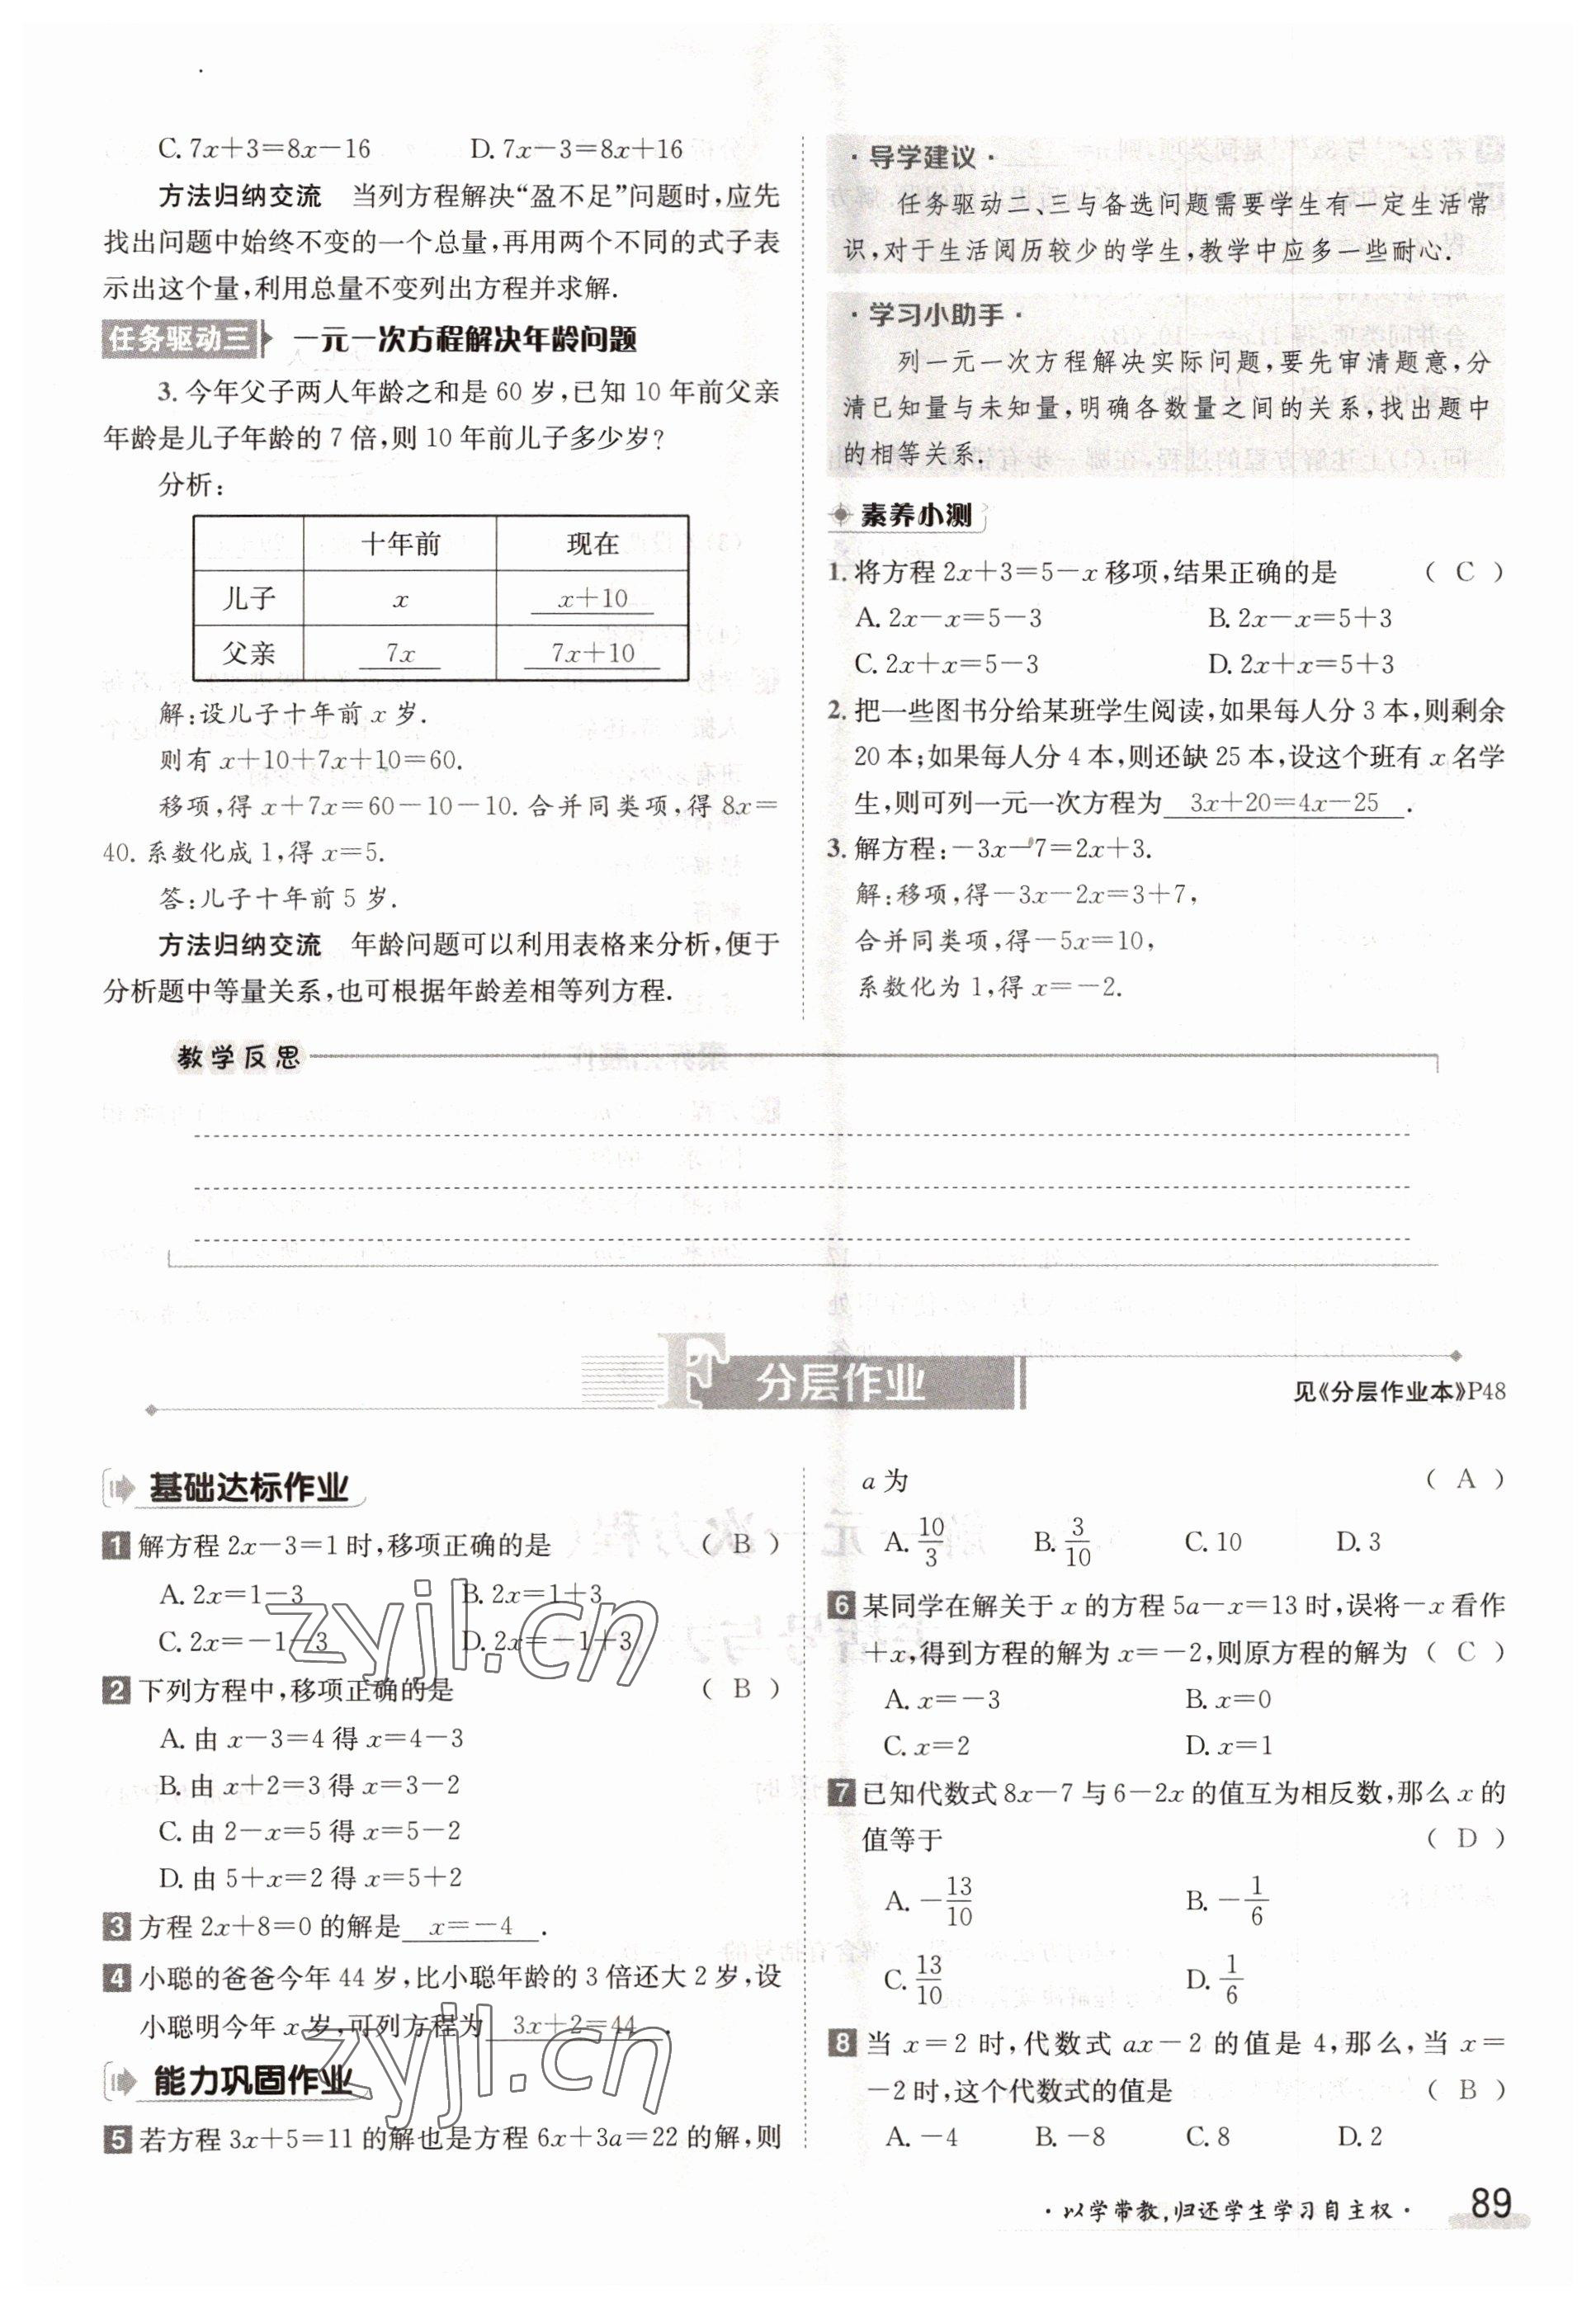 C. 7x+3=8x-16 D. 7x-3=8x+16
方法归纳交流 当列方程解决“盈不足”问题时,应先
找出问题中始终不变的一个总量,再用两个不同的式子表
示出这个量,利用总量不变列出方程并求解.
任务驱动三 一元一次方程解决年龄问题
3. 今年父子两人年龄之和是 60 岁,已知 10 年前父亲
年龄是儿子年龄的 7 倍,则 10 年前儿子多少岁?
分析:
十年前 现在
儿子 x x+10
父亲 7x 7x+10
解:设儿子十年前 x 岁.
则有 x+10+7x+10=60.
移项,得 x+7x=60-10-10. 合并同类项,得 8x=
40. 系数化成 1,得 x=5.
答:儿子十年前 5 岁.
方法归纳交流 年龄问题可以利用表格来分析,便于
分析题中等量关系,也可根据年龄差相等列方程.
·导学建议·
任务驱动二、三与备选问题需要学生有一定生活常
识,对于生活阅历较少的学生,教学中应多一些耐心.
·学习小助手·
列一元一次方程解决实际问题,要先审清题意,分
清已知量与未知量,明确各数量之间的关系,找出题中
的相等关系.
素养小测
1. 将方程 2x+3=5-x 移项,结果正确的是 ( C )
A. 2x-x=5-3 B. 2x-x=5+3
C. 2x+x=5-3 D. 2x+x=5+3
2. 把一些图书分给某班学生阅读,如果每人分 3 本,则剩余
20 本;如果每人分 4 本,则还缺 25 本,设这个班有 x 名学
生,则可列一元一次方程为 3x+20=4x-25 .
3. 解方程:-3x-7=2x+3.
解:移项,得-3x-2x=3+7,
合并同类项,得-5x=10,
系数化为 1,得 x=-2.
教学反思
F 分层作业
见《分层作业本》P48
基础达标作业
1 解方程 2x-3=1 时,移项正确的是 ( B )
A. 2x=1-3 B. 2x=1+3
C. 2x=-1-3 D. 2x=-1+3
2 下列方程中,移项正确的是 ( B )
A. 由 x-3=4 得 x=4-3
B. 由 x+2=3 得 x=3-2
C. 由 2-x=5 得 x=5-2
D. 由 5+x=2 得 x=5+2
3 方程 2x+8=0 的解是 x=-4 .
4 小聪的爸爸今年 44 岁,比小聪年龄的 3 倍还大 2 岁,设
小聪明今年 x 岁,可列方程为 3x+2=44 .
能力巩固作业
5 若方程 3x+5=11 的解也是方程 6x+3a=22 的解,则
a 为 ( A )
A. 10/3 B. 3/10 C. 10 D. 3
6 某同学在解关于 x 的方程 5a-x=13 时,误将-x 看作
+x,得到方程的解为 x=-2,则原方程的解为 ( C )
A. x=-3 B. x=0
C. x=2 D. x=1
7 已知代数式 8x-7 与 6-2x 的值互为相反数,那么 x 的
值等于 ( D )
A. -13/10 B. -1/6
C. 13/10 D. 1/6
8 当 x=2 时,代数式 ax-2 的值是 4,那么,当 x=
-2 时,这个代数式的值是 ( B )
A. -4 B. -8 C. 8 D. 2
·以学带教,归还学生学习自主权·
89
zyjl.cn
zyjl.cn